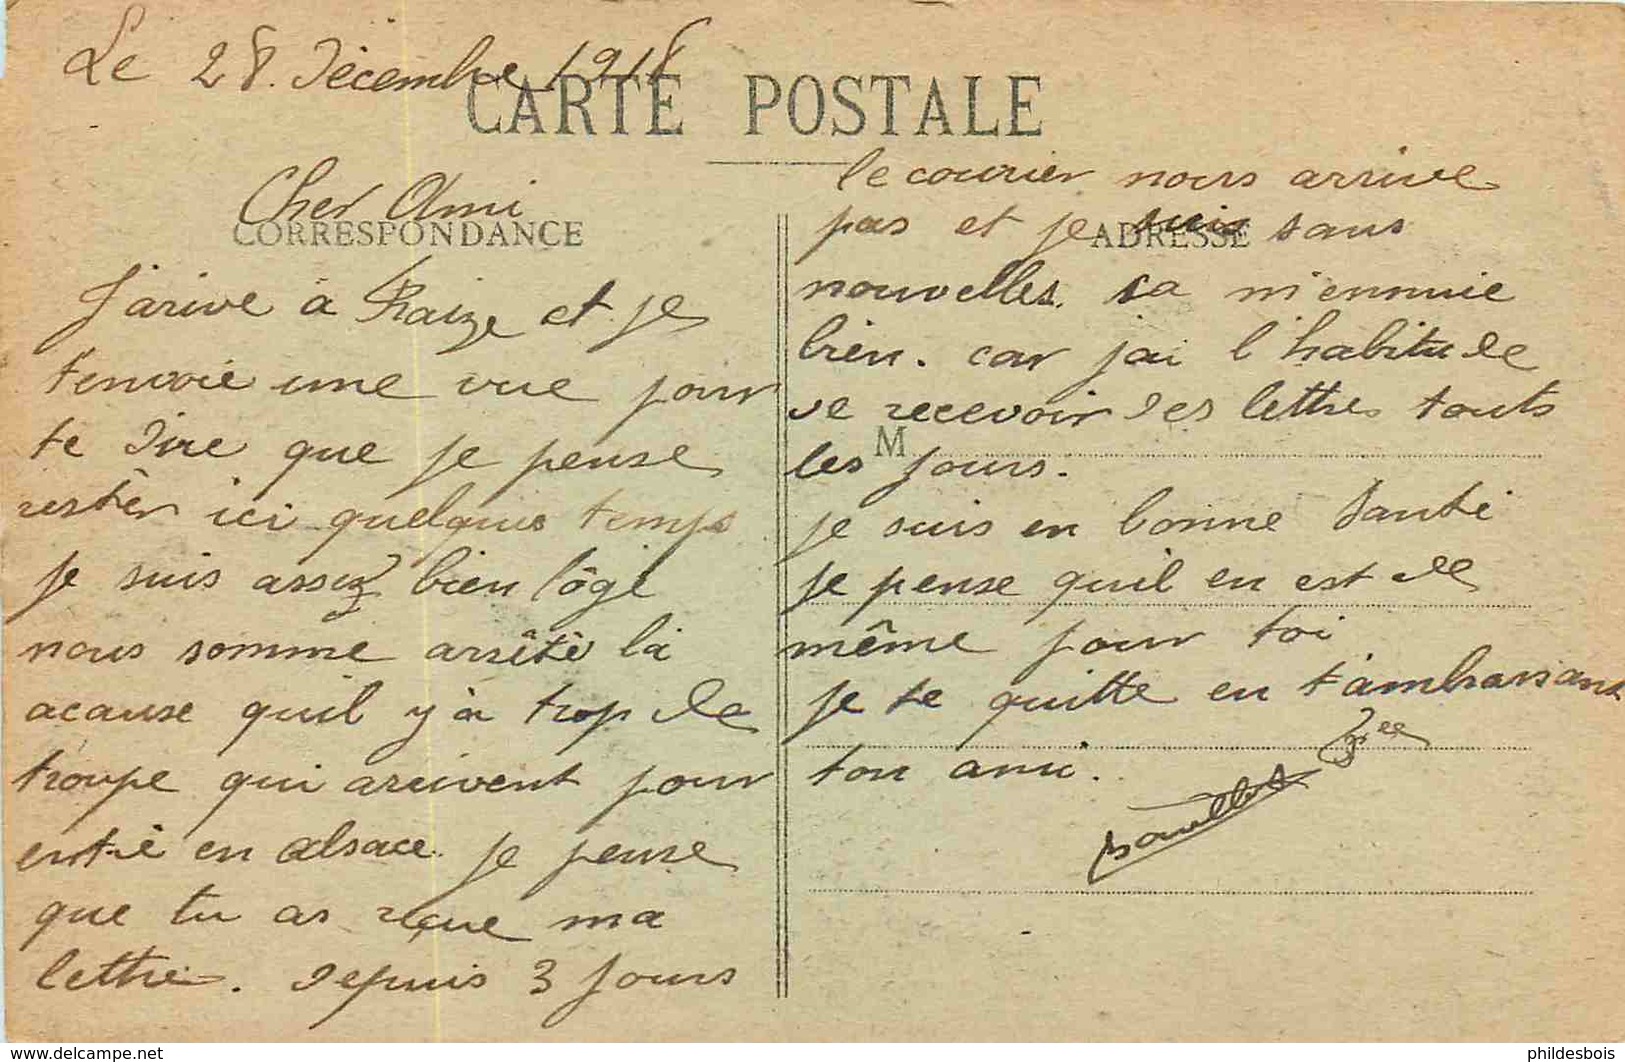 Le 28. Décembre 1918
CARTE POSTALE
Cher Ami
CORRESPONDANCE
J'arive à Fraize et je
t'envoie une vue pour
te dire que je pense
restèr ici quelques temps
je suis assez bien lôgé
nous somme arrêtè là
acause quil y à trop de
troupe qui arrivent pour
entré en alsace. je pense
que tu as reçue ma
lettre. depuis 3 jours
le courier nous arrive
pas et je suis sans
ADRESSE
nouvelles. sa m'ennuie
bien. car jai l'habitude
de recevoir des lettres touts
M
les jours.
je suis en bonne Santé
je pense quil en est de
même pour toi
je te quitte en t'ambrassant
ton ami.
www.delcampe.net
phildesbois